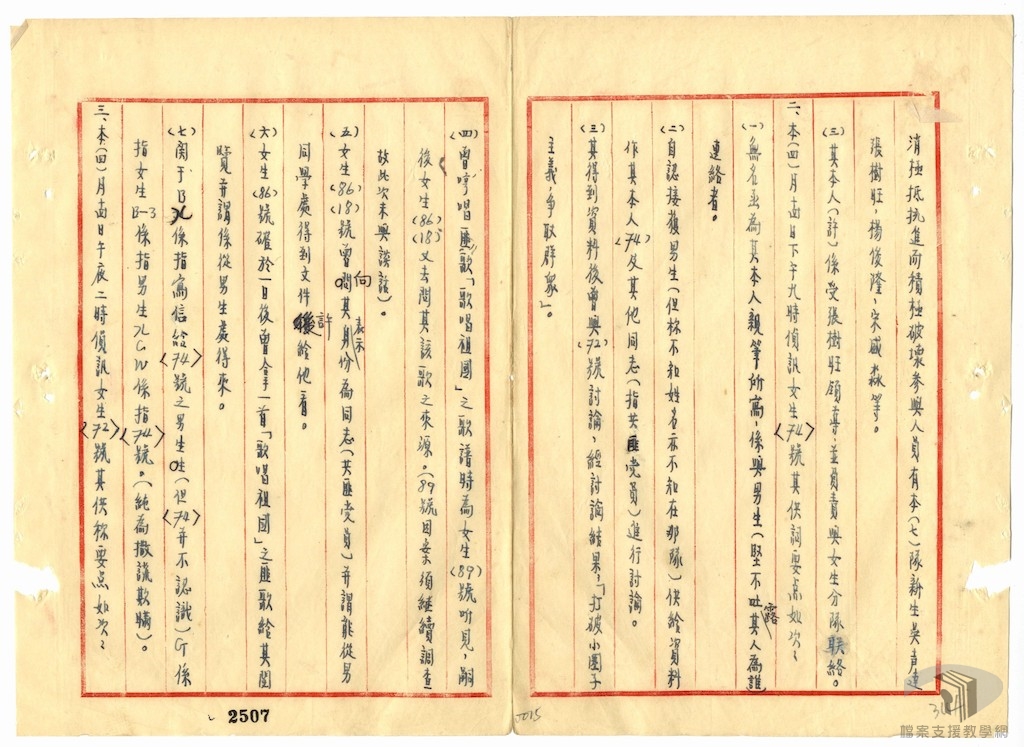 消極抵抗進而積極破壞參與人員有本(七)隊新生吳声達
張樹旺，楊俊隆，宋盛淼等。
(三)其本人(許)係受張樹旺領導，並負責與女生分隊联絡。
二、本(四)月卅日下午九時偵訊女生〈74〉號其供詞要点如次：
(一)無名函為其本人親筆所寫，係與男生(堅不吐露其人為誰)
連絡者。
(二)自認接獲男生(但称不知姓名亦不知在那隊)供給資料
作其本人〈74〉及其他同志(指共匪党員)進行討論。
(三)其得到資料後曾與〈72〉號討論，經討論結果，「打破小圈子
主義，爭取群眾」。
(四)曾哼唱匪歌「歌唱祖國」之歌譜時為女生(89)號听見，嗣
後女生(86)(18)又去問其該歌之來源。(89號因案須継續調查
故此次未與談話)。
(五)女生(86)(18)號曾向其表示身份為同志(共匪党員)并謂能從男
同學處得到文件許給他看。
(六)女生(86)號確於一日後曾拿一首「歌唱祖國」之匪歌給其閱
覽并謂係從男生處得來。
(七)関于B係指寫信給〈74〉號之男生(但〈74〉并不認識)G係
指女生B-3係指男生ㄆGW係指〈74〉號。(純為撒謊欺瞞)。
三、本(四)月卅日午夜二時偵訊女生〈72〉號其供称要点如次：
2507
2015
304
檔案支援教學網